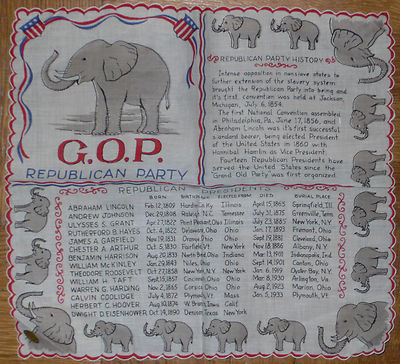 G.O.P.
REPUBLICAN PARTY
REPUBLICAN PARTY HISTORY
Intense opposition in nonslave states to
further extension of the slavery system
brought the Republican Party into being and
it's first convention was held at Jackson,
Michigan, July 6, 1854.
The first National Convention assembled
in Philadelphia, Pa., June 17, 1856, and
Abraham Lincoln was it's first successful
standard bearer, being elected President
of the United States in 1860 with
Hannibal Hamlin as Vice President.
Fourteen Republican Presidents have
served the United States since the
Grand Old Party was first organized.
REPUBLICAN PRESIDENTS
BORN ELECTED FROM DIED BURIAL PLACE
ABRAHAM LINCOLN Feb. 12, 1809 Ky. Illinois April 15, 1865 Springfield, Ill.
ANDREW JOHNSON Dec. 29, 1808 Raleigh, N.C. Tennessee July 31, 1875 Greenville, Tenn.
ULYSSES S. GRANT Apr. 27, 1822 Ohio Illinois July 23, 1885 New York
RUTHERFORD B. HAYES Oct. 4, 1822 Delaware, Ohio Ohio Jan. 17, 1893 Fremont, Ohio
JAMES A. GARFIELD Nov. 19, 1831 Orange, Ohio Ohio Sept. 19, 1881 Cleveland, Ohio
CHESTER A. ARTHUR Oct. 5, 1830 Fairfield, Vt. New York Nov. 18, 1886 Albany, N.Y.
BENJAMIN HARRISON Aug. 20, 1833 North Bend, Ohio Indiana Mar. 13, 1901 Indianapolis, Ind.
WILLIAM McKINLEY Jan. 29, 1843 Niles, Ohio Ohio Sept. 14, 1901 Canton, Ohio
THEODORE ROOSEVELT Oct. 27, 1858 New York, N.Y. New York Jan. 6, 1919 Oyster Bay, N.Y.
WILLIAM H. TAFT Sept. 15, 1857 Cincinnati, Ohio Ohio Mar. 8, 1930 Arlington, Va.
WARREN G. HARDING Nov. 2, 1865 Corsica, Ohio Ohio Aug. 2, 1923 Marion, Ohio
CALVIN COOLIDGE July 4, 1872 Plymouth, Vt. Mass. Jan. 5, 1933 Plymouth, Vt.
HERBERT C. HOOVER Aug. 10, 1874 W. Branch, Iowa Calif.
DWIGHT D. EISENHOWER Oct. 14, 1890 Denison, Texas New York